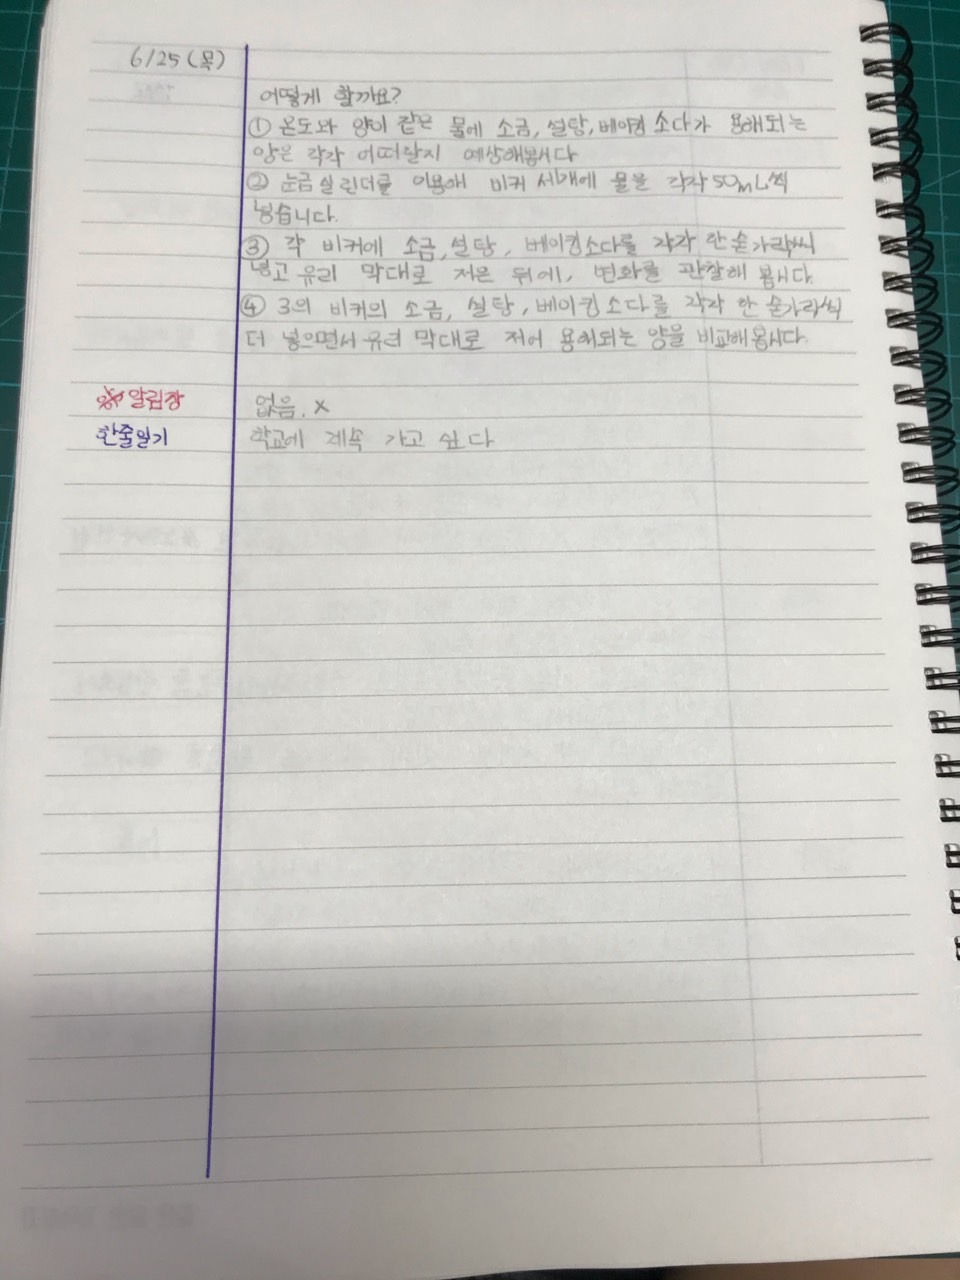 6/25(목)
어떻게 할까요?
① 온도와 양이 같은 물에 소금, 설탕, 베이킹 소다가 용해되는
양은 각각 어떠할지 예상해봅시다
② 눈금실린더를 이용해 비커 세개에 물을 각각 50mL씩
넣습니다.
③ 각 비커에 소금, 설탕, 베이킹소다를 각각 한 숟가락씩
넣고 유리 막대로 저은 뒤에, 변화를 관찰해 봅시다.
④ 3의 비커의 소금, 설탕, 베이킹소다를 각각 한 숟가락씩
더 넣으면서 유리 막대로 저어 용해되는 양을 비교해봅시다.
알림장 없음. x
한줄일기 학교에 계속 가고 싶다